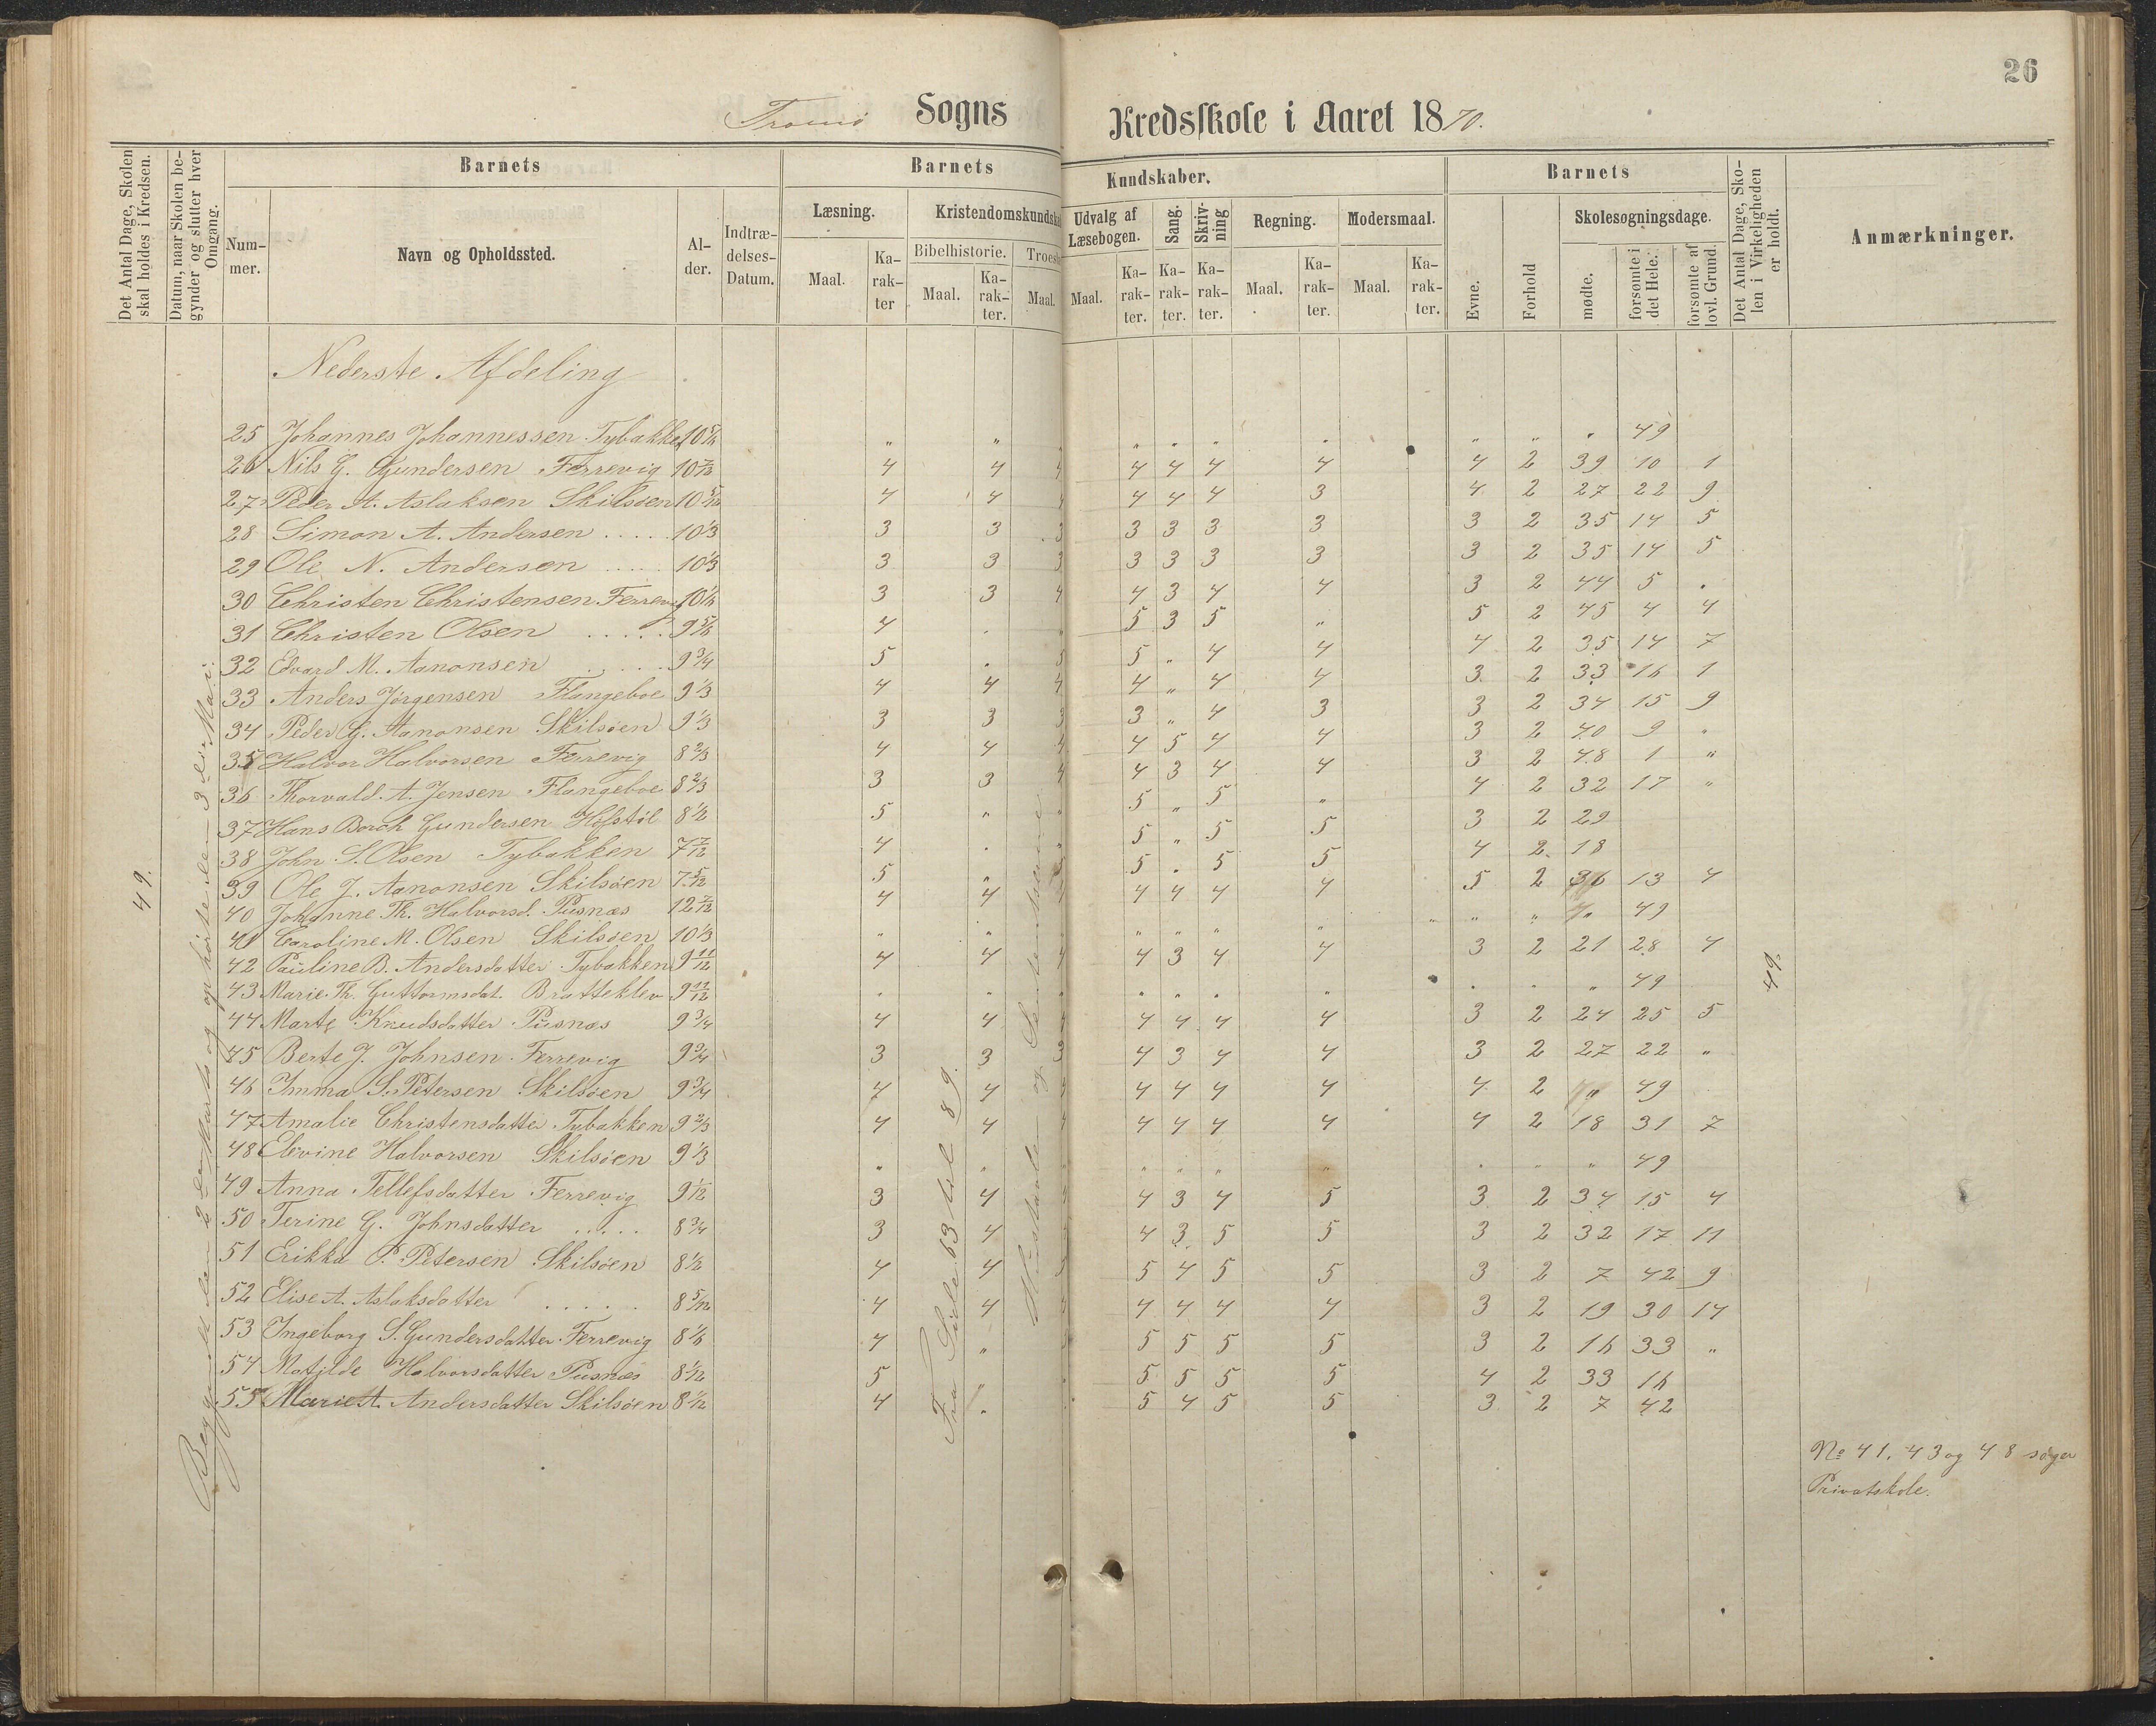 26
Tromö Sogns Kredsskole i Aaret 1870.
Det Antal Dage, Skolen skal holdes i Kredsen.
Datum, naar Skolen begynder og slutter hver Omgang.
Barnets
Nummer.
Navn og Opholdssted.
Alder.
Indtrædelses-Datum.
Barnets Kundskaber.
Læsning.
Maal.
Karakter
Kristendomskundsk
Bibelhistorie.
Maal.
Karakter.
Troes
Maal.
Udvalg af Læsebogen.
Maal.
Karakter.
Sang.
Karakter.
Skrivning
Karakter.
Regning.
Maal.
Karakter.
Modersmaal.
Maal.
Karakter.
Barnets
Evne.
Forhold
Skolesøgningsdage.
mødte.
forsømte i det Hele.
forsømte af lovl. Grund.
Det Antal Dage, Skolen i Virkeligheden er holdt.
Anmærkninger.
Nederste Afdeling
25 Johannes Johannessen Tybakken 10 5/6 " " " " " " " " " 49
26 Nils G. Gundersen Ferrevig 10 7/12 4 4 4 4 4 4 4 4 2 39 10 1
27 Peder A. Aslaksen Skilsöen 10 5/12 4 4 4 4 4 4 3 4 2 27 22 9
28 Simon A. Andersen ..... 10 1/3 3 3 3 3 3 3 3 3 2 35 14 5
29 Ole N. Andersen ..... 10 1/3 3 3 3 3 3 3 3 3 2 35 14 5
30 Christen Christensen Ferrevig 10 1/6 3 3 4 4 3 4 4 3 2 44 5 .
31 Christen Olsen ..... 9 5/6 4 . " 5 3 5 " 5 2 45 4 4
32 Edvard M. Aanonsen ..... 9 3/4 5 . 5 5 " 4 4 4 2 35 14 7
33 Anders Jörgensen Flangeboe 9 1/3 4 4 4 4 " 4 4 3 2 33 16 1
34 Peder G. Aanonsen Skilsöen 9 1/3 3 3 3 3 " 4 3 3 2 34 15 9
35 Halvor Halvorsen Ferrevig 8 2/3 4 4 4 4 5 4 4 3 2 40 9 "
36 Thorvald A. Jensen Flangeboe 8 2/3 3 3 4 4 3 4 4 3 2 48 1 "
37 Hans Borch Gundersen Hofstöl 8 1/2 5 " " 5 " 5 " 4 2 32 17 "
38 John S. Olsen Tybakken 7 7/12 4 . " 5 " 5 5 3 2 29
39 Ole J. Aanonsen Skilsöen 7 5/12 5 " 5 5 . 5 5 4 2 18
40 Johanne Th. Halvorsd. Pusnæs 12 7/12 4 4 4 4 4 4 4 5 2 36 13 4
41 Caroline M. Olsen Skilsöen 10 1/3 " " " " " " " " " 49
42 Pauline B. Andersdatter Tybakken 9 11/12 4 4 4 4 3 4 4 3 2 21 28 4
43 Marie Th. Guttormsdat. Bratteklev 9 11/12 . " . " " . " . . " 49
44 Marte Knudsdatter Pusnæs 9 3/4 4 4 4 4 4 4 4 3 2 24 25 5
45 Berte J. Johnsen Ferrevig 9 3/4 3 3 3 4 3 4 4 3 2 27 22 "
46 Imma S. Petersen Skilsöen 9 3/4 4 4 4 4 4 4 4 4 2 " 49
47 Amalie Christensdatter Tybakken 9 2/3 4 4 4 4 4 4 4 4 2 18 31 7
48 Elevine Halvorsen Skilsöen 9 1/3 " " " " " " " " " 49
49 Anna Tellefsdatter Ferrevig 9 1/12 3 4 4 4 3 4 5 3 2 34 15 4
50 Terine G. Johnsdatter ..... 8 3/4 3 4 4 3 5 5 3 2 32 17 11
51 Erikka P. Petersen Skilsöen 8 1/2 4 4 5 5 4 5 5 3 2 7 42 9
52 Elise A. Aslaksdatter ..... 8 5/12 4 4 4 4 4 4 4 3 2 19 30 14
53 Ingeborg S. Gundersdatter Ferrevig 8 1/6 4 " 5 5 5 5 3 2 16 33 "
54 Matilde Halvorsdatter Pusnæs 8 1/12 5 " 5 5 5 5 4 2 33 16
55 Marie A. Andersdatter Skilsöen 8 1/12 4 " 5 4 5 5 3 2 7 42
49.
Begyndt den 2den Marts og ophörte den 3die Mai
Fra Side 63 til 89.
og
49.
No 41, 43 og 48 söger
Privatskole.